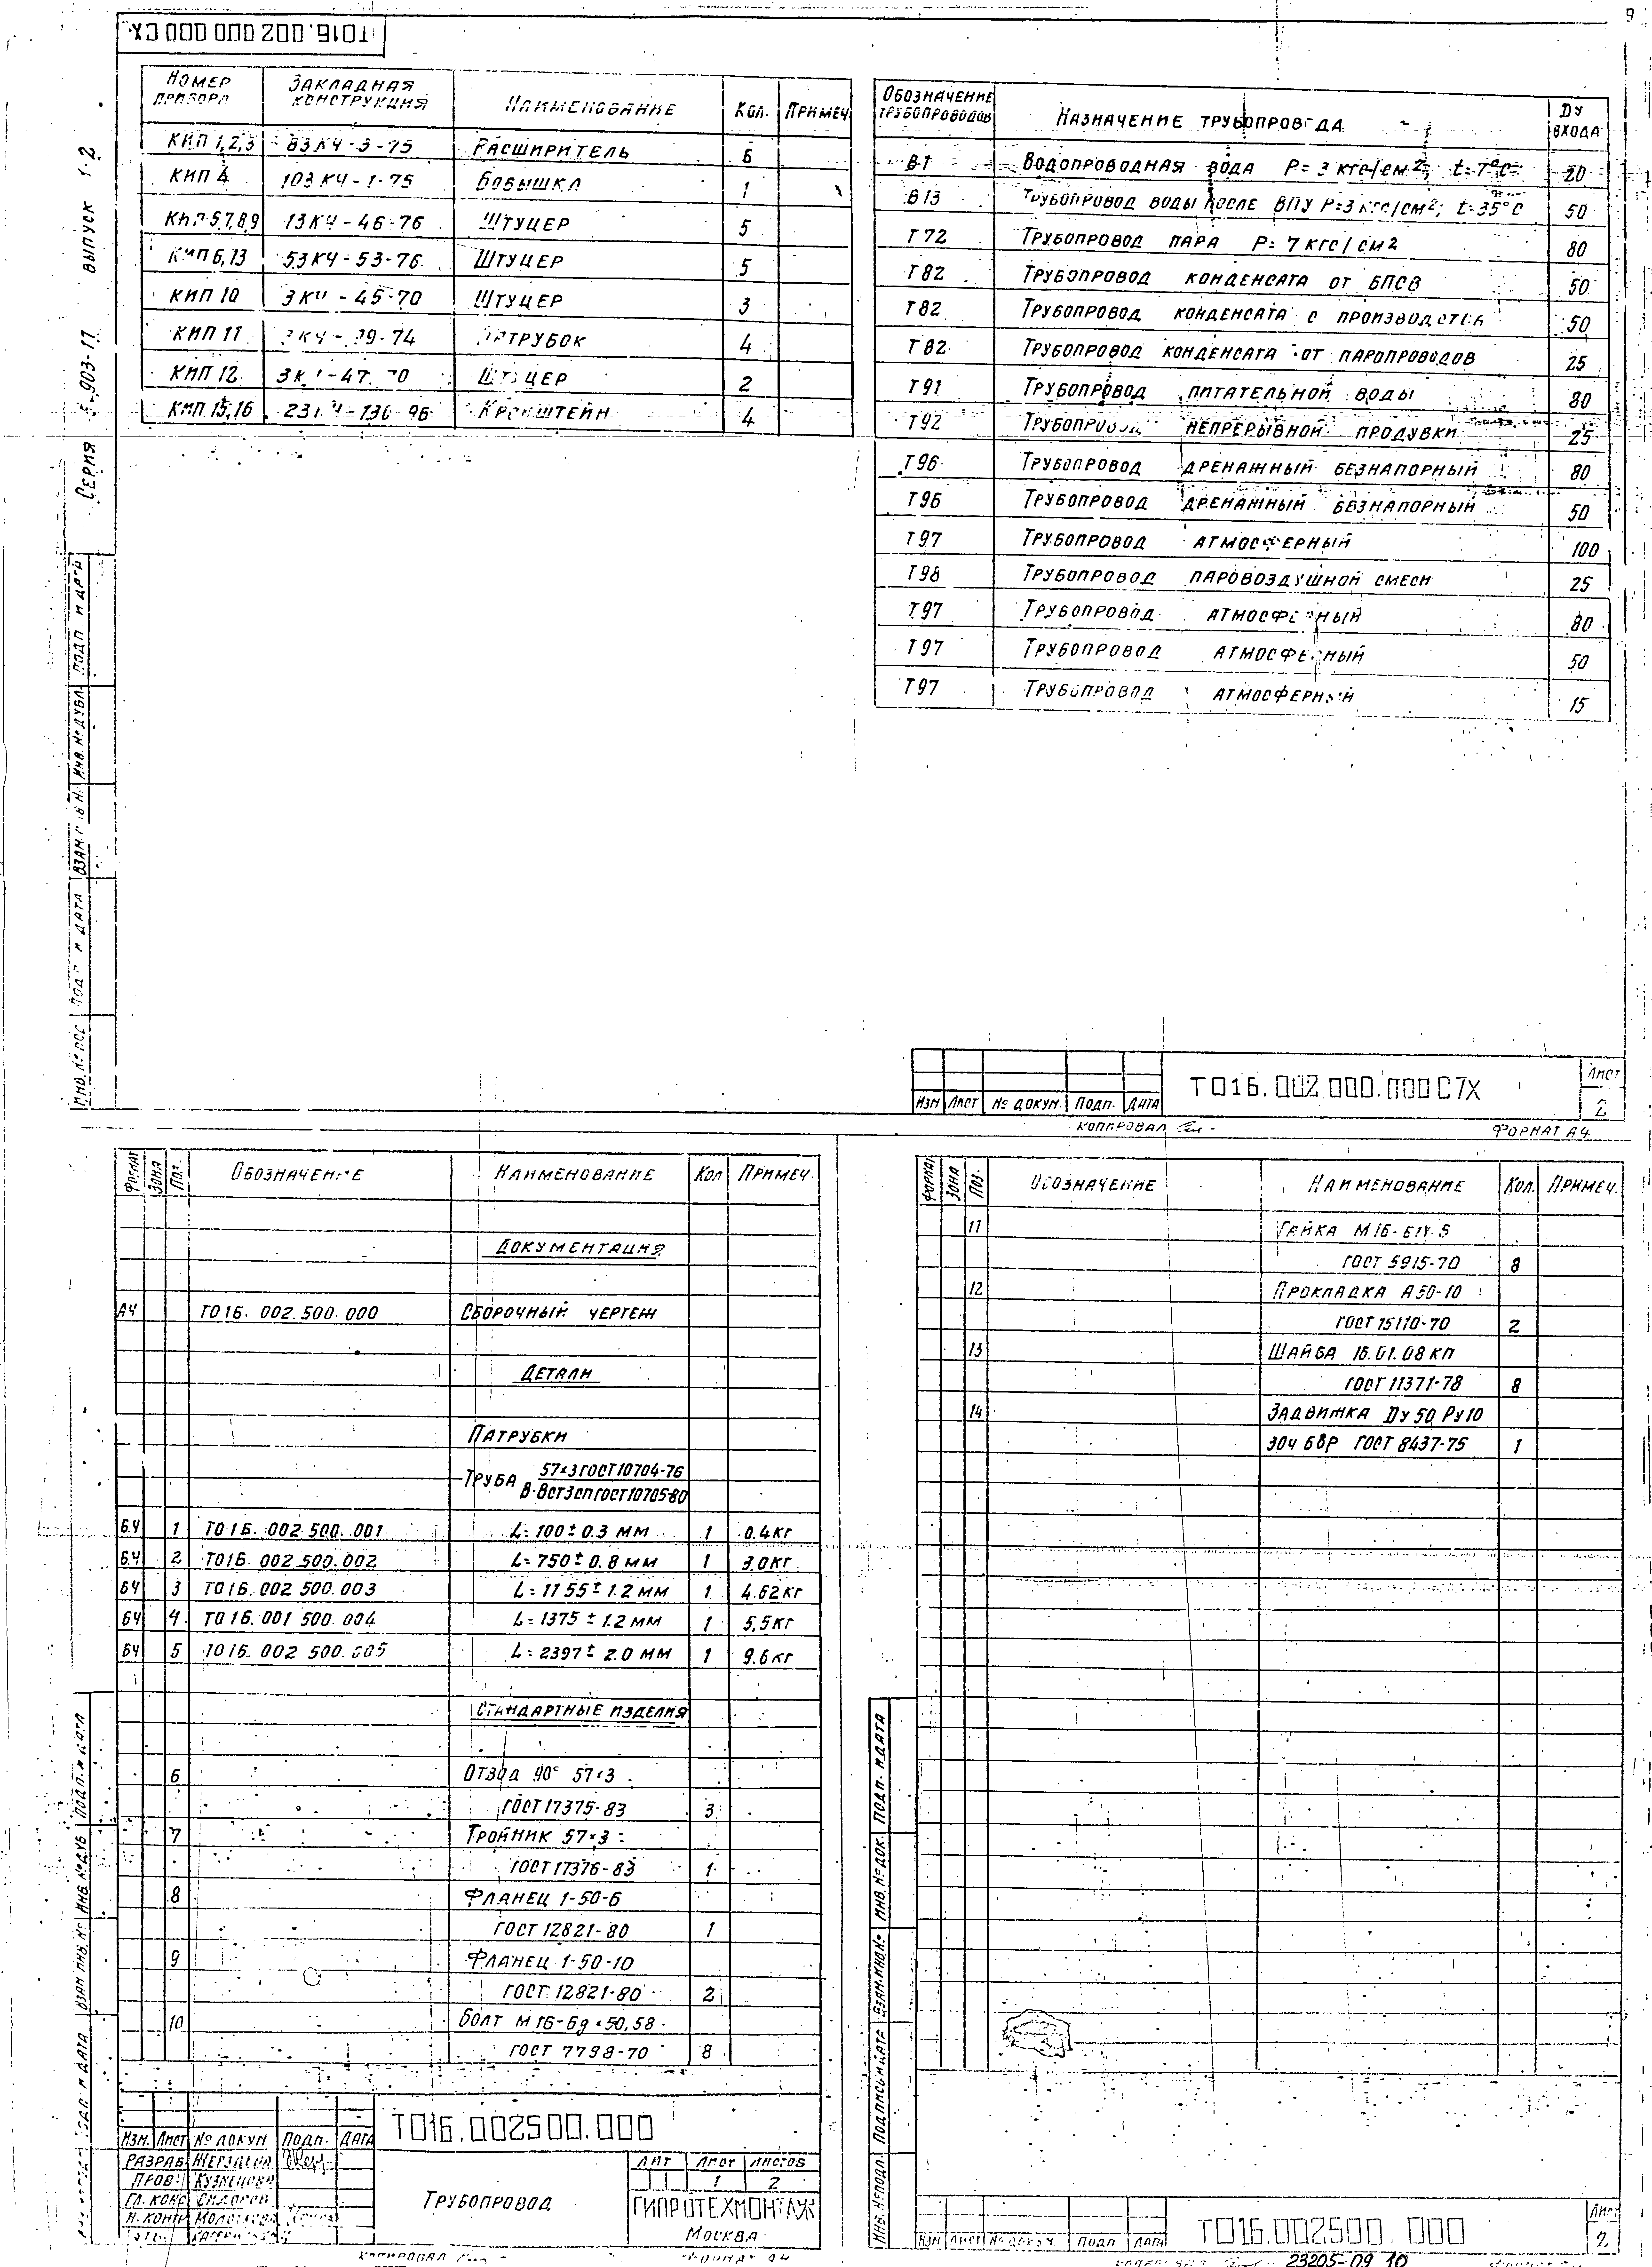 9
Т016.002 000 000 СХ
Серия 5-903-17 выпуск 1-2
Номер прибора | Закладная конструкция | Наименование | Кол. | Примеч.
КИП 1,2,3 | 83КЧ-3-75 | Расширитель | 6
КИП 4 | 103КЧ-1-75 | Бобышка | 1
КИП 5,7,8,9 | 13КЧ-46-76 | Штуцер | 5
КИП 6,13 | 53КЧ-53-76 | Штуцер | 5
КИП 10 | 3КЧ-45-70 | Штуцер | 3
КИП 11 | Патрубок | 4
КИП 12 | Штуцер | 2
КИП 15,16 | Кронштейн | 4
Обозначение трубопроводов | Назначение трубопровода | Ду входа
В1 | Водопроводная вода P=3 кгс/см2; t=7°С | 20
В13 | Трубопровод воды после ВПУ P=3 кгс/см2; t=35°С | 50
Т72 | Трубопровод пара P=7 кгс/см2 | 80
Т82 | Трубопровод конденсата от БПСВ | 50
Т82 | Трубопровод конденсата с производства | 50
Т82 | Трубопровод конденсата от паропроводов | 25
Т91 | Трубопровод питательной воды | 80
Т92 | Трубопровод непрерывной продувки | 25
Т96 | Трубопровод дренажный безнапорный | 80
Т96 | Трубопровод дренажный безнапорный | 50
Т97 | Трубопровод атмосферный | 100
Т98 | Трубопровод паровоздушной смеси | 25
Т97 | Трубопровод атмосферный | 80
Т97 | Трубопровод атмосферный | 50
Т97 | Трубопровод атмосферный | 15
Подп. и дата
Инв. № дубл.
Взам. инв. №
Подп. и дата
Инв. № под
Изм | Лист | № докум. | Подп. | Дата
Т016.002.000.000 СТХ
Лист
2
Копировал
Формат А4
Формат | Зона | Поз. | Обозначение | Наименование | Кол | Примеч.
Документация
А4 | Т016.002.500.000 | Сборочный чертеж
Детали
Патрубки
Труба 57×3 ГОСТ 10704-76
В-ВСт3сп ГОСТ 10705-80
БЧ | 1 | Т016.002 500.001 | L=100±0.3 мм | 1 | 0.4кг
БЧ | 2 | Т016.002 500.002 | L=750±0.8 мм | 1 | 3.0кг
БЧ | 3 | Т016.002 500.003 | L=1155±1.2 мм | 1 | 4.62кг
БЧ | 4 | Т016.001 500.004 | L=1375±1.2 мм | 1 | 5,5кг
БЧ | 5 | Т016.002 500.005 | L=2397±2.0 мм | 1 | 9.6кг
Стандартные изделия
6 | Отвод 90° 57×3
ГОСТ 17375-83 | 3
7 | Тройник 57×3
ГОСТ 17376-83 | 1
8 | Фланец 1-50-6
ГОСТ 12821-80 | 1
9 | Фланец 1-50-10
ГОСТ 12821-80 | 2
10 | Болт М16-6g×50,58
ГОСТ 7798-70 | 8
Подп. и дата
Инв № дуб
Взам инв. №
Подп. и дата
Изм. | Лист | № докум | Подп. | Дата
Т016.002500.000
Разраб
Пров. Кузнецова
Гл. конс
Н. контр
Трубопровод
Лит | Лист | Листов
1 | 2
ГИПРОТЕХМОНТАЖ
Москва
Копировал
Формат А4
Формат | Зона | Поз. | Обозначение | Наименование | Кол. | Примеч.
11 | Гайка М16-6Н.5
ГОСТ 5915-70 | 8
12 | Прокладка А50-10
ГОСТ 15110-70 | 2
13 | Шайба 16.01.08 кп
ГОСТ 11371-78 | 8
14 | Задвижка Ду 50 Ру10
30ч 6бр ГОСТ 8437-75 | 1
Подп. и дата
Инв. № док.
Взам. инв. №
Подпись и дата
Инв. № подл.
Изм | Лист | № докум. | Подп | Дата
Т016.002500.000
Лист
2
23205-09 10